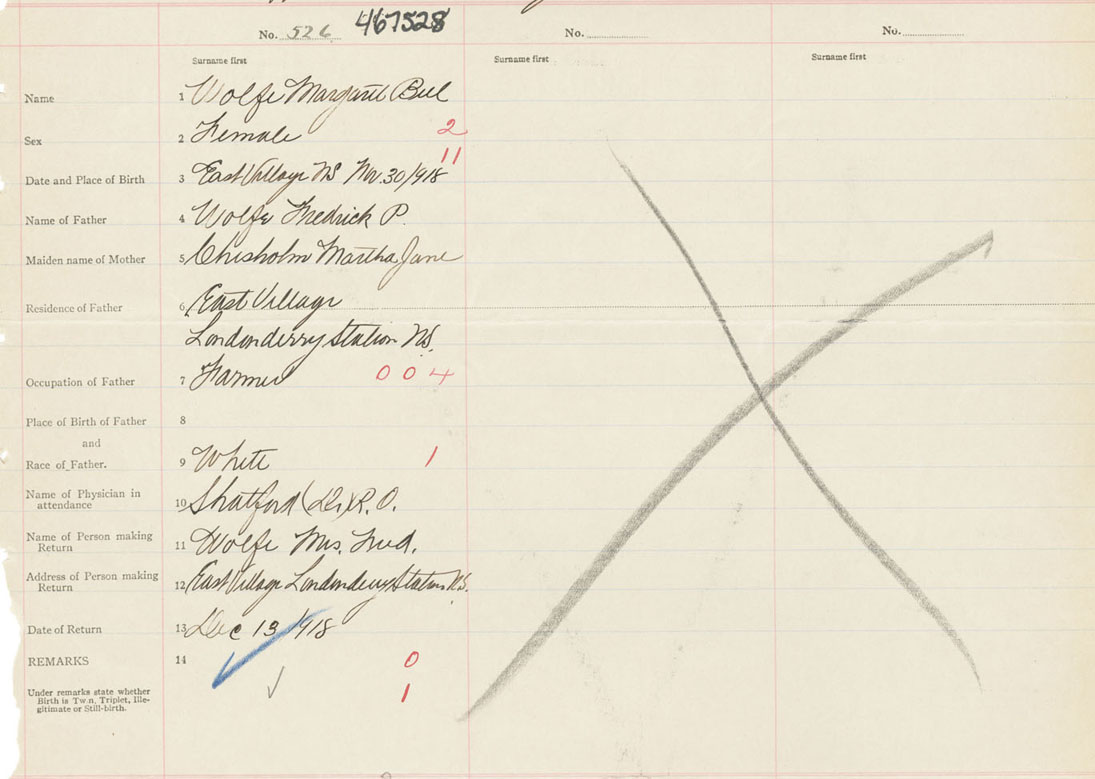 No. 526 467528 No. No.
Surname first Surname first Surname first
Name 1 Wolfe Margaret Bell
Sex 2 Female 2
11
Date and Place of Birth 3 East Village NS Nov. 30/918
Name of Father 4 Wolfe Fredrick P.
Maiden name of Mother 5 Chisholm Martha Jane
Residence of Father 6 East Village
Londonderry Station NS.
Occupation of Father 7 Farmer 0 0 4
Place of Birth of Father 8
and
Race of Father. 9 White 1
Name of Physician in
attendance 10 Shatford (Dr) R. O.
Name of Person making
Return 11 Wolfe Mrs. Fred.
Address of Person making
Return 12 East Village Londonderry Station NS.
Date of Return 13 Dec 13/918
REMARKS 14 0
Under remarks state whether
Birth is Twin, Triplet, Ille-
gitimate or Still-birth. 1